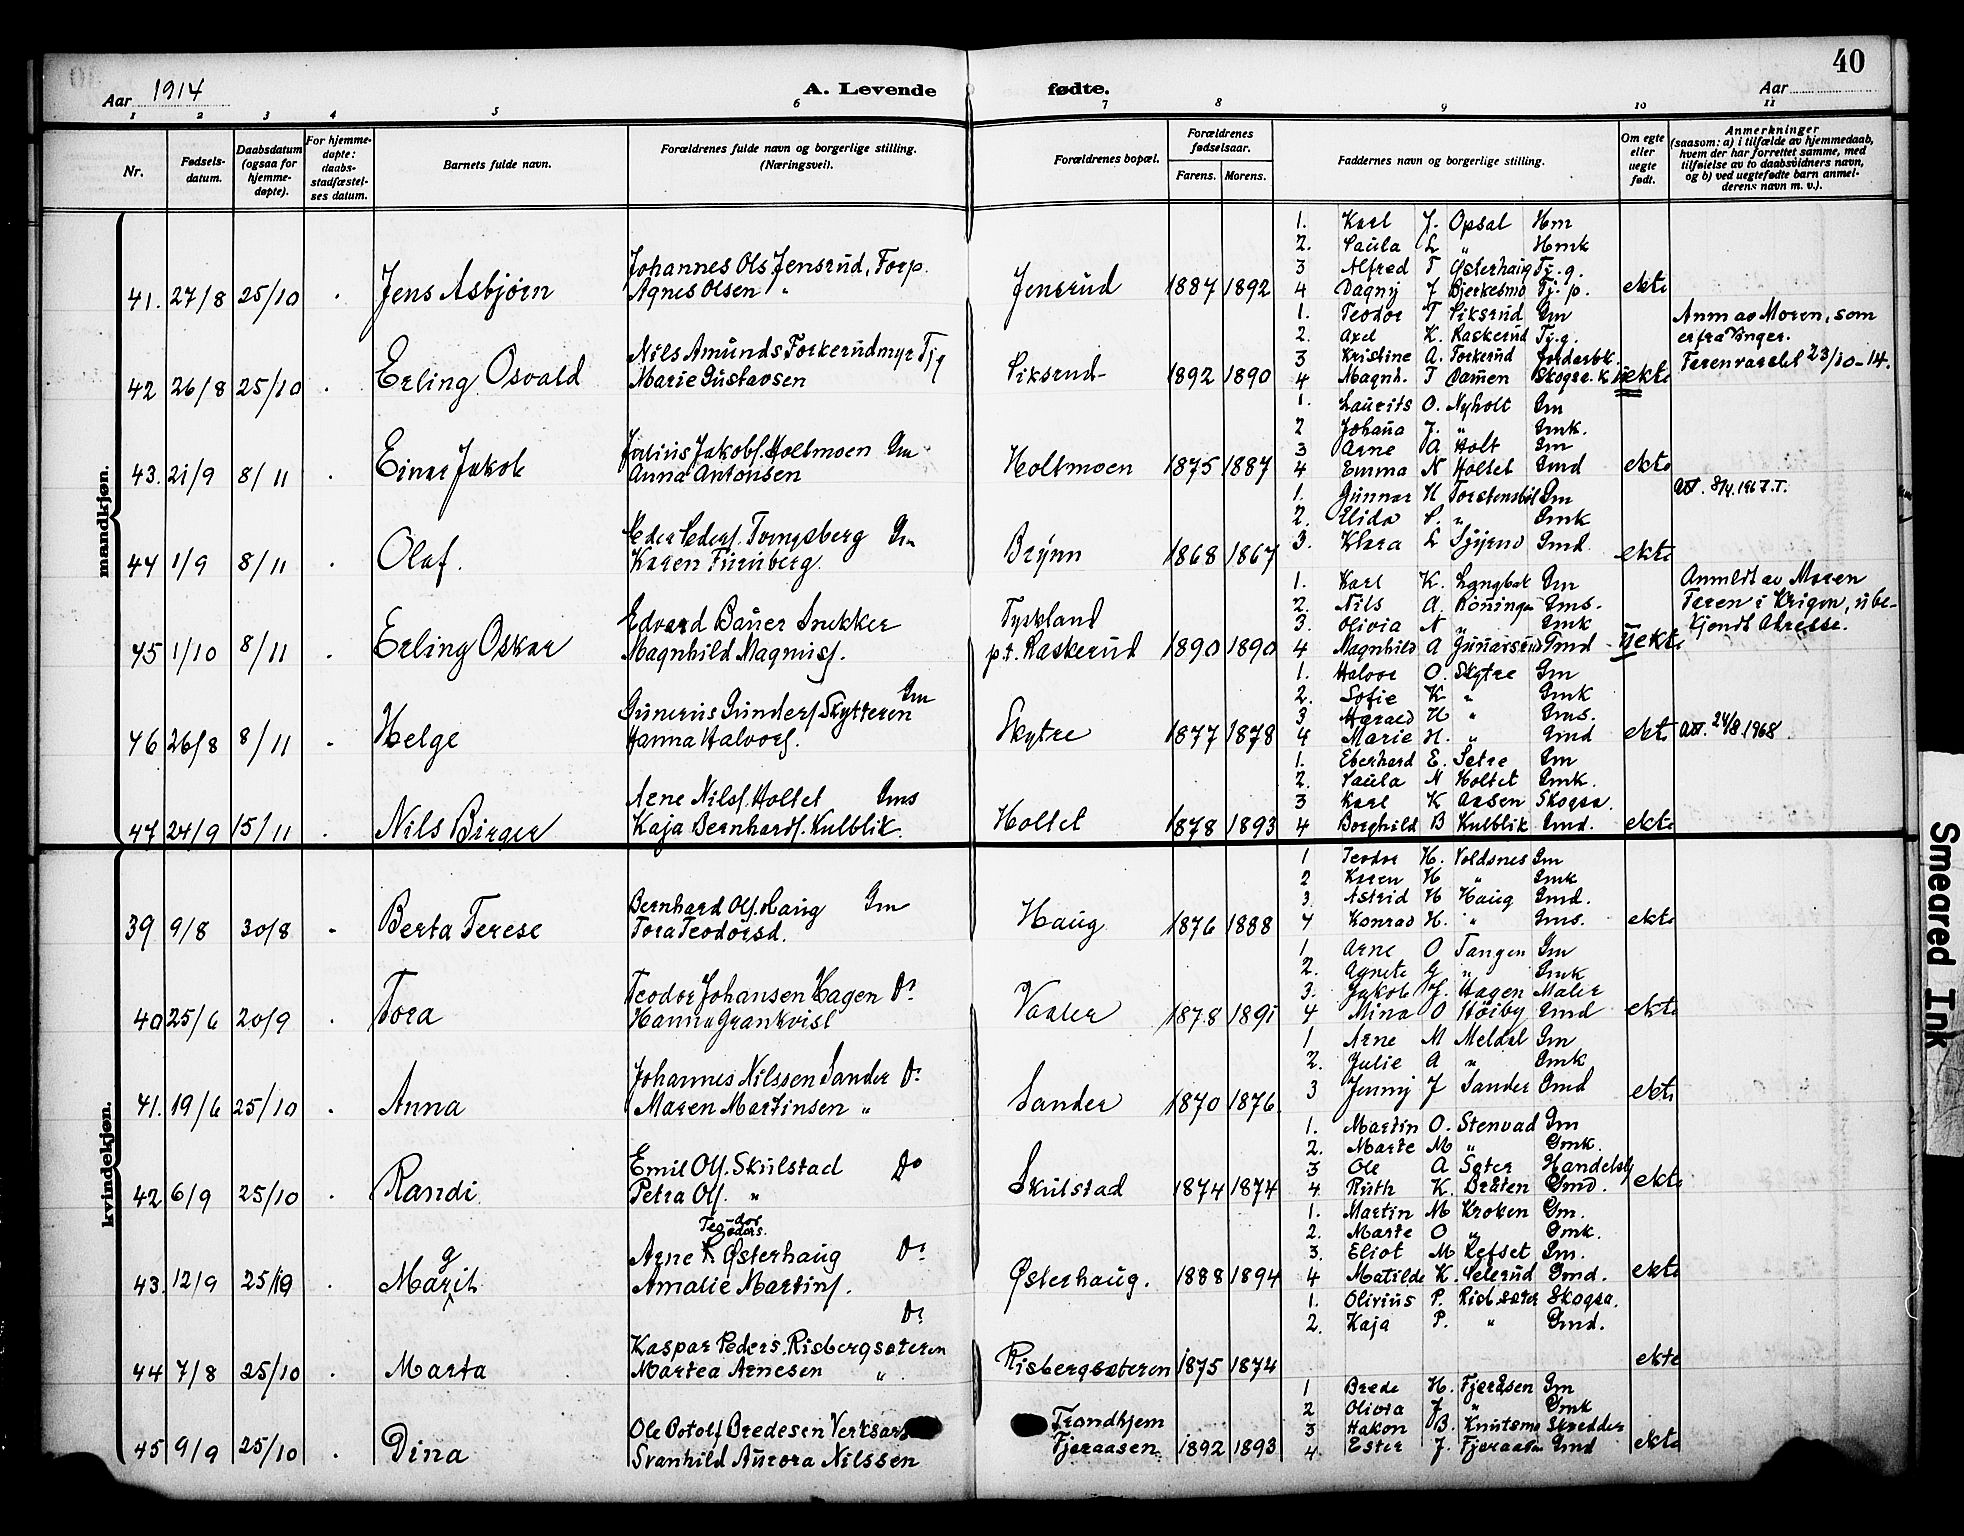 40
Aar 1914
A. Levende fødte.
Aar
1 2 3 4 5 6 7 8 9 10 11
Nr.
Fødsels-
datum.
Daabsdatum
(ogsaa for
hjemme-
døpte).
For hjemme-
døpte:
daabs-
stadfæstel-
ses datum.
Barnets fulde navn.
Forældrenes fulde navn og borgerlige stilling.
(Næringsvei).
Forældrenes bopæl.
Forældrenes
fødselsaar.
Farens. Morens.
Faddernes navn og borgerlige stilling.
Om egte
eller
uegte
født.
Anmerkninger
(saasom: a) i tilfælde av hjemmedaab,
hvem der har forrettet samme, med
tilføielse av to daabsvidners navn,
og b) ved uegtefødte barn anmel-
derens navn m. v.).
mandkjøn.
41. 27/8 25/10 Jens Asbjørn
Johannes Ols. Jensrud, Forp.
Agnes Olsen "
Jensrud 1887 1892
1. Karl J. Opsal Hm
2. Paula L " Hmk
3 Alfred T Østerhaug Tj.g.
4 Dagny J Bjerkesmo Tj.p.
ekte
42 26/8 25/10 Erling Osvald
Nils Amunds Forkerudmyr Tjg
Marie Gustavsen
Siksrud 1892 1890
1. Teodor T Siksrud Gm
2. Axel K. Raskerud Tj.g.
3 Kristine A. Torkerud
4 Magnh. T Damen
uekte
Anm av Moren, som
er fra Vinger.
23/10-14.
43. 21/9 8/11 Einar Jakob
Julius Jakobs. Holtmoen Gm
Anna Antonsen
Holtmoen 1875 1887
1. Laurits O. Nyholt Gm
2 Johana J. " Gmk.
3 Arne A Holt Gm
4 Emma N Holtet Gmd
ekte
44 1/9 8/11 Olaf.
Peder Peders. Tvengsberg Gm
Karen Furuberg.
Brynn 1868 1867
1. Gunnar H Gm
2. Elida P. " Gmk
3. Klara L Gmd.
ekte
8/4.1967.T.
45 1/10 8/11 Erling Oskar
Edvard Bauer Snekker
Magnhild Magnuss.
Tyskland
p.t. Raskerud 1890 1890
1. Karl K. Langbak Gm
2. Nils A. Røningen Gms.
3. Olivia N " Gmk
4 Magnhild A Gunarsrud Gmd
uekte
Anmeldt av Moren
Faren i Krigen, ube-
kjendt Adresse.
46 26/8 8/11 Helge
Gunerius Gunders. Skytteren Gm
Hanna Halvors.
Skytre 1877 1878
1. Halvor O. Skytre Gm
2. Sofie K " Gmk
3. Harald H " Gms.
4 Marie H. " Gmd
ekte
24/8.1968.
47 24/9 15/11 Nils Birger
Arne Nils. Holtet Gms
Kaja Bernhards. Kulblik.
Holtet 1878 1893
1. Eberhard E. Sætre Gm
2. Paula N Holtet Gmk.
3 Karl K Aasen Skogsa.
4 Borghild B Kulblik Gmd.
ekte
kvindekjøn.
39 9/8 30/8 Berta Terese
Bernhard Ols. Haug Gm
Tora Teodorsd.
Haug 1876 1888
1 Teodor H. Voldsnes Gm
2 Karen H " Gmk
3. Astrid H Haug Gmd.
4 Konrad H. " Gms.
ekte
40 25/6 20/9 Tora
Teodor Johansen Hagen Do
Hanna Grankvist
Vasler 1878 1891
1 Arne O Tangen Gm
2. Agnete G " Gmk
3. Jakob J. Hagen Maler
4 Mina O Høiby Gmd
ekte
41. 19/6 25/10 Anna
Johannes Nilssen Sander Do
Maren Martinsen "
Sander 1870 1876.
1 Arne M Meldal Gm
2. Julie A " Gmk
3 Jenny J Sander Gmd
ekte
42 6/9 25/10 Randi.
Emil Ols. Skulstad Do
Petra Ols. "
Skulstad 1874 1874
1. Martin O. Stenvad Gm
2. Marte M " Gmk.
3 Ole A Sæter Handelsb
4. Ruth K. Bråten Gmd.
ekte
43. 12/9 25/10 Margit
Teo-dor
Arne Østerhaug Do
Amalie Martins.
Østerhaug. 1888 1894
1. Martin M Kroken Gm.
2. Marte O " Gmk.
3. Eliot M Refset Gm.
4 Matilde K. Selerud Gmd.
ekte
44 7/8 25/10 Marta
Do
Kaspar Peders. Risbergsæteren
Martea Arnesen "
Risbergsæteren 1875 1874
1. Olivius P. Risb.sæter Skogsa.
2. Kaja P. " Gmd.
ekte
45 9/9 25/10 Dina
Ole Botolf Bredesen Verksarb
Svanhild Aurora Nilssen
Trondhjem
Fjeraasen 1892 1893
1 Brede H. Fjeråsen Gm
2 Olivia J " Gmk
3 Hakon B. Knutsmo Skredder
4. Ester J. Fjeraasen Gmd
ekte
Smeared Ink